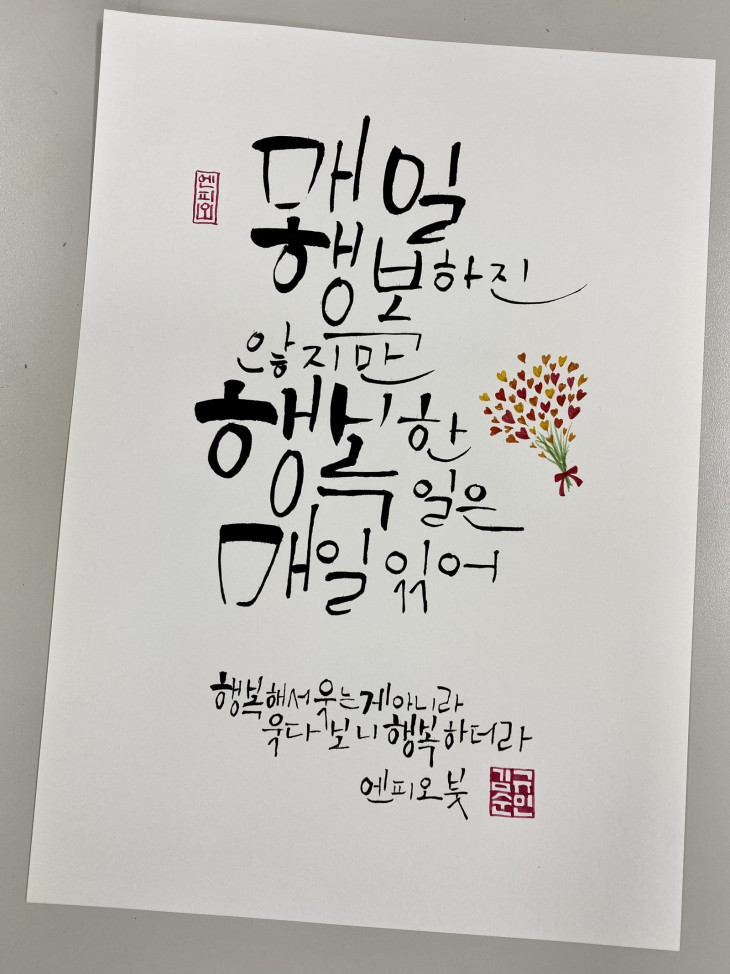 엔피오
매일
행복하진
않지만
행복한
일은
매일 있어
행복해서 웃는게 아니라
웃다보니 행복하더라
엔피오 붓
김규
준인